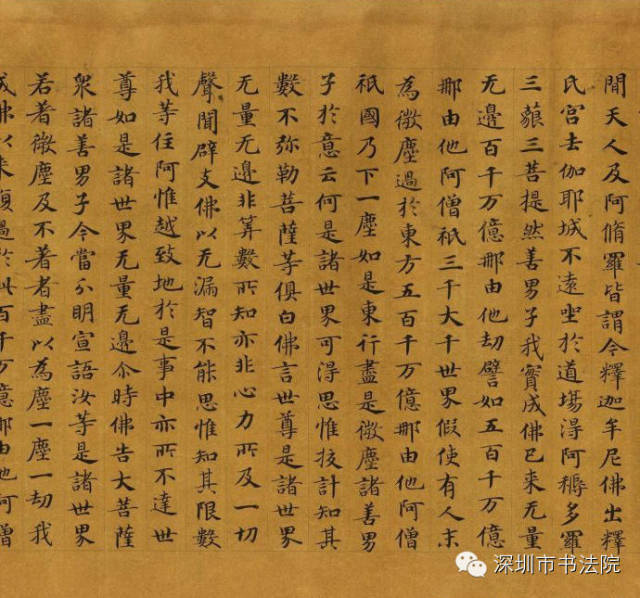 間天人及阿脩羅皆謂今釋迦牟尼佛出釋
氏宮去伽耶城不遠坐於道場得阿耨多羅
三藐三菩提然善男子我實成佛已來无量
无邊百千万億那由他劫譬如五百千万億
那由他阿僧祇三千大千世界假使有人末
為微塵過於東方五百千万億那由他阿僧
祇國乃下一塵如是東行盡是微塵諸善男
子於意云何是諸世界可得思惟挍計知其
數不弥勒菩薩等俱白佛言世尊是諸世界
无量无邊非筭數所知亦非心力所及一切
聲聞辟支佛以无漏智不能思惟知其限數
我等住阿惟越致地於是事中亦所不達世
尊如是諸世界无量无邊尒時佛告大菩薩
衆諸善男子今當分明宣語汝等是諸世界
若著微塵及不著者盡以為塵一塵一劫我
成佛以来過於此百千万億那由他阿僧
深圳市书法院